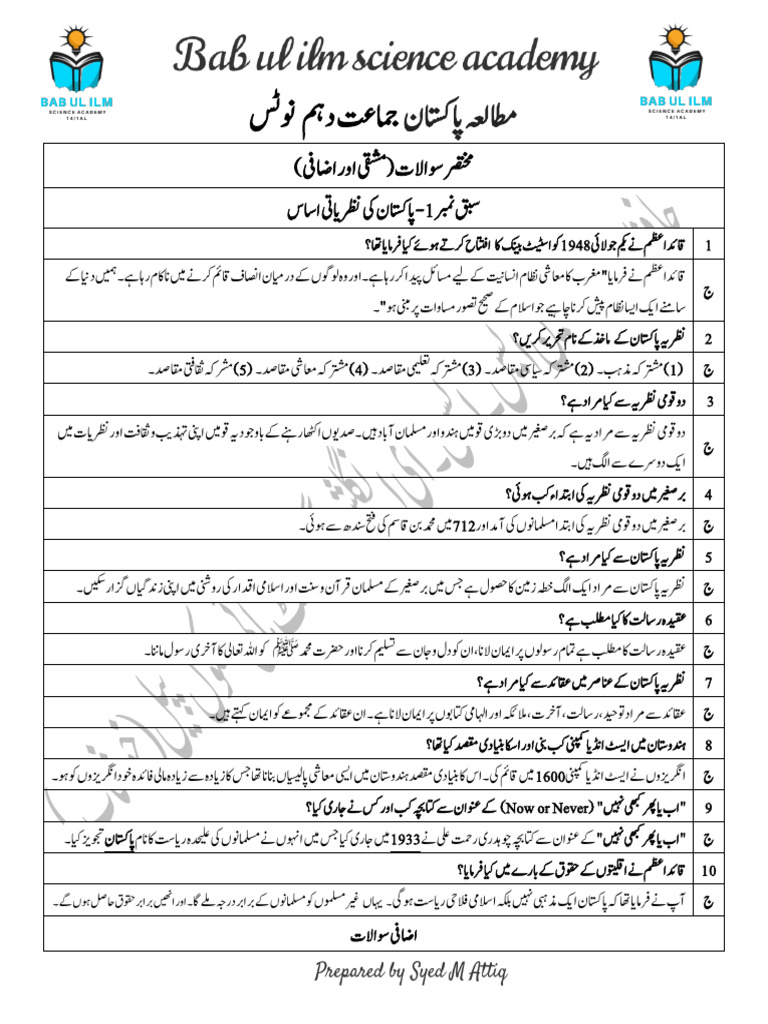 Bab ul ilm science academy
BAB UL ILM
SCIENCE ACADEMY
14/1AL
BAB UL ILM
SCIENCE ACADEMY
14/1AL
مطالعہ پاکستان جماعت دہم نوٹس
مختصر سوالات (مشقی اور اضافی)
سبق نمبر 1- پاکستان کی نظریاتی اساس
1 قائداعظم نے یکم جولائی 1948 کو اسٹیٹ بینک کا افتتاح کرتے ہوئے کیا فرمایا تھا؟
ج قائداعظم نے فرمایا "مغرب کا معاشی نظام انسانیت کے لیے مسائل پیدا کر رہا ہے۔ اور وہ لوگوں کے درمیان انصاف قائم کرنے میں ناکام رہا ہے۔ ہمیں دنیا کے
سامنے ایک ایسا نظام پیش کرنا چاہیے جو اسلام کے صحیح تصور مساوات پر مبنی ہو"۔
2 نظریہ پاکستان کے ماخذ کے نام تحریر کریں؟
ج (1) مشترکہ مذہب۔ (2) مشترکہ سیاسی مقاصد۔ (3) مشترکہ تعلیمی مقاصد۔ (4) مشترکہ معاشی مقاصد۔ (5) مشرکہ ثقافتی مقاصد۔
3 دو قومی نظریہ سے کیا مراد ہے؟
ج دو قومی نظریہ سے مراد یہ ہے کہ برصغیر میں دو بڑی قومیں ہندو اور مسلمان آباد ہیں۔ صدیوں اکٹھا رہنے کے باوجود یہ قومیں اپنی تہذیب و ثقافت اور نظریات میں
ایک دوسرے سے الگ ہیں۔
4 برصغیر میں دو قومی نظریہ کی ابتداء کب ہوئی؟
ج برصغیر میں دو قومی نظریہ کی ابتدا مسلمانوں کی آمد اور 712 میں محمد بن قاسم کی فتح سندھ سے ہوئی۔
5 نظریہ پاکستان سے کیا مراد ہے؟
ج نظریہ پاکستان سے مراد ایک الگ خطہ زمین کا حصول ہے جس میں برصغیر کے مسلمان قرآن و سنت اور اسلامی اقدار کی روشنی میں اپنی زندگیاں گزار سکیں۔
6 عقیدہ رسالت کا کیا مطلب ہے؟
ج عقیدہ رسالت کا مطلب ہے تمام رسولوں پر ایمان لانا، ان کو دل و جان سے تسلیم کرنا اور حضرت محمد ﷺ کو اللہ تعالی کا آخری رسول ماننا۔
7 نظریہ پاکستان کے عناصر میں عقائد سے کیا مراد ہے؟
ج عقائد سے مراد توحید، رسالت، آخرت، ملائکہ اور الہامی کتابوں پر ایمان لانا ہے۔ ان عقائد کے مجموعے کو ایمان کہتے ہیں۔
8 ہندوستان میں ایسٹ انڈیا کمپنی کب بنی اور اسکا بنیادی مقصد کیا تھا؟
ج انگریزوں نے ایسٹ انڈیا کمپنی 1600 میں قائم کی۔ اس کا بنیادی مقصد ہندوستان میں ایسی معاشی پالیسیاں بنانا تھا جس کا زیادہ سے زیادہ مالی فائدہ خود انگریزوں کو ہو۔
9 "اب یا پھر کبھی نہیں" (Now or Never) کے عنوان سے کتابچہ کب اور کس نے جاری کیا؟
ج "اب یا پھر کبھی نہیں" کے عنوان سے کتابچہ چوہدری رحمت علی نے 1933 میں جاری کیا جس میں انہوں نے مسلمانوں کی علیحدہ ریاست کا نام پاکستان تجویز کیا۔
10 قائداعظم نے اقلیتوں کے حقوق کے بارے میں کیا فرمایا؟
ج آپ نے فرمایا تھا کہ پاکستان ایک مذہبی نہیں بلکہ اسلامی فلاحی ریاست ہوگی۔ یہاں غیر مسلموں کو مسلمانوں کے برابر درجہ ملے گا۔ اور انھیں برابر حقوق حاصل ہوں گے۔
اضافی سوالات
Prepared by Syed M Attiq